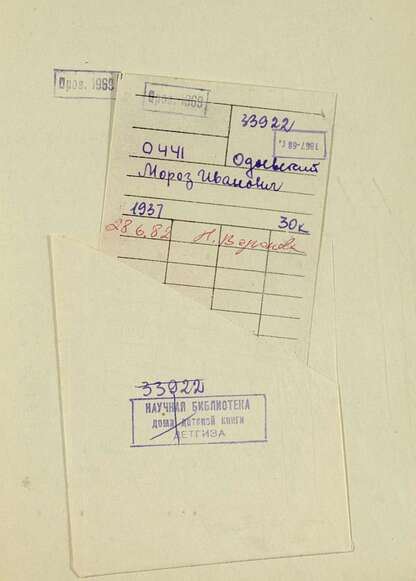 Пров. 1969
Пров. 1969
33922
1967-68 г.
0441
Одоевский
Мороз Иванович
1937
30к
28.6.82
33922
НАУЧНАЯ БИБЛИОТЕКА
дома детской книги
ДЕТГИЗА